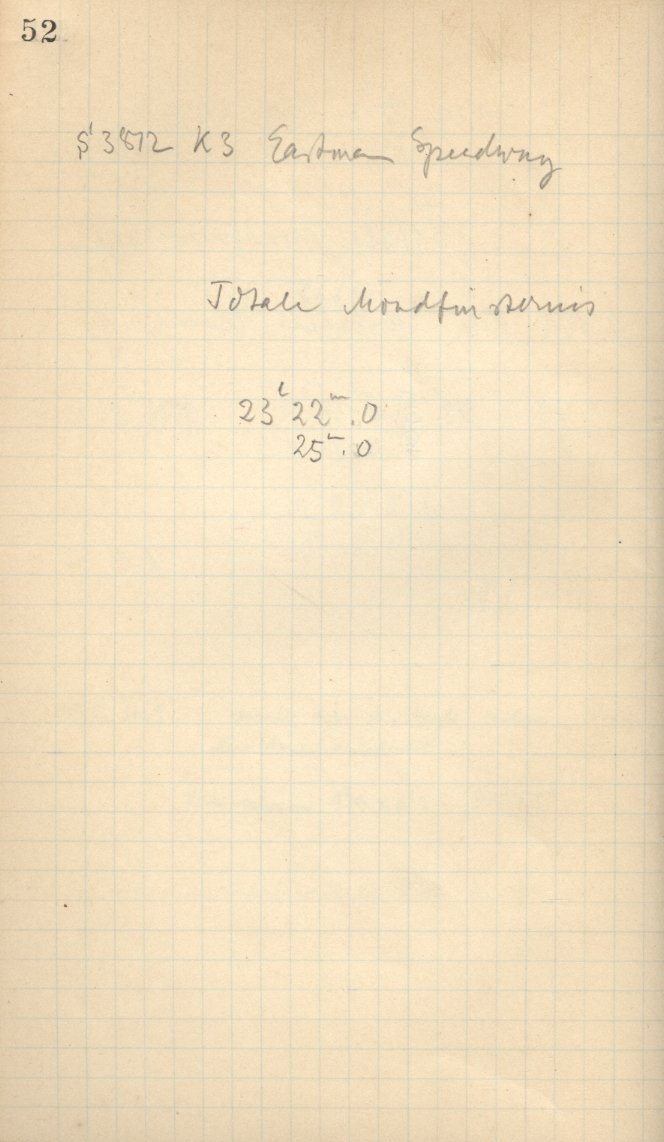 52
S 3872 K3 Eastman Speedway
Totale Mondfinsternis
23ʰ 22ᵐ.0
25ᵐ.0